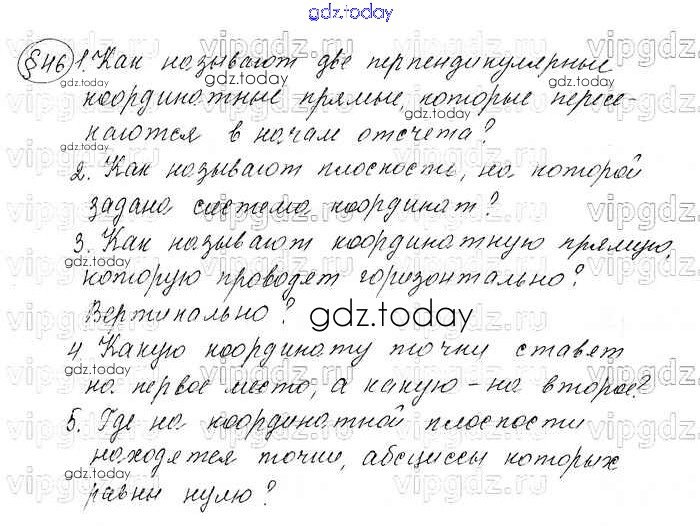 gdz.today
§46 1. Как называют две перпендикулярные
координатные прямые, которые пересе-
каются в начам отсчета?
2. Как называют плоскость, на которой
задана система координат?
3. Как называют координатную прямую,
которую проводят горизонтально?
Вертикально?
gdz.today
4 Какую координату точки ставят
на первое место, а какую - на второе?
5. Где на координатной плоскости
находятся точки, абсциссы которых
равны нулю?